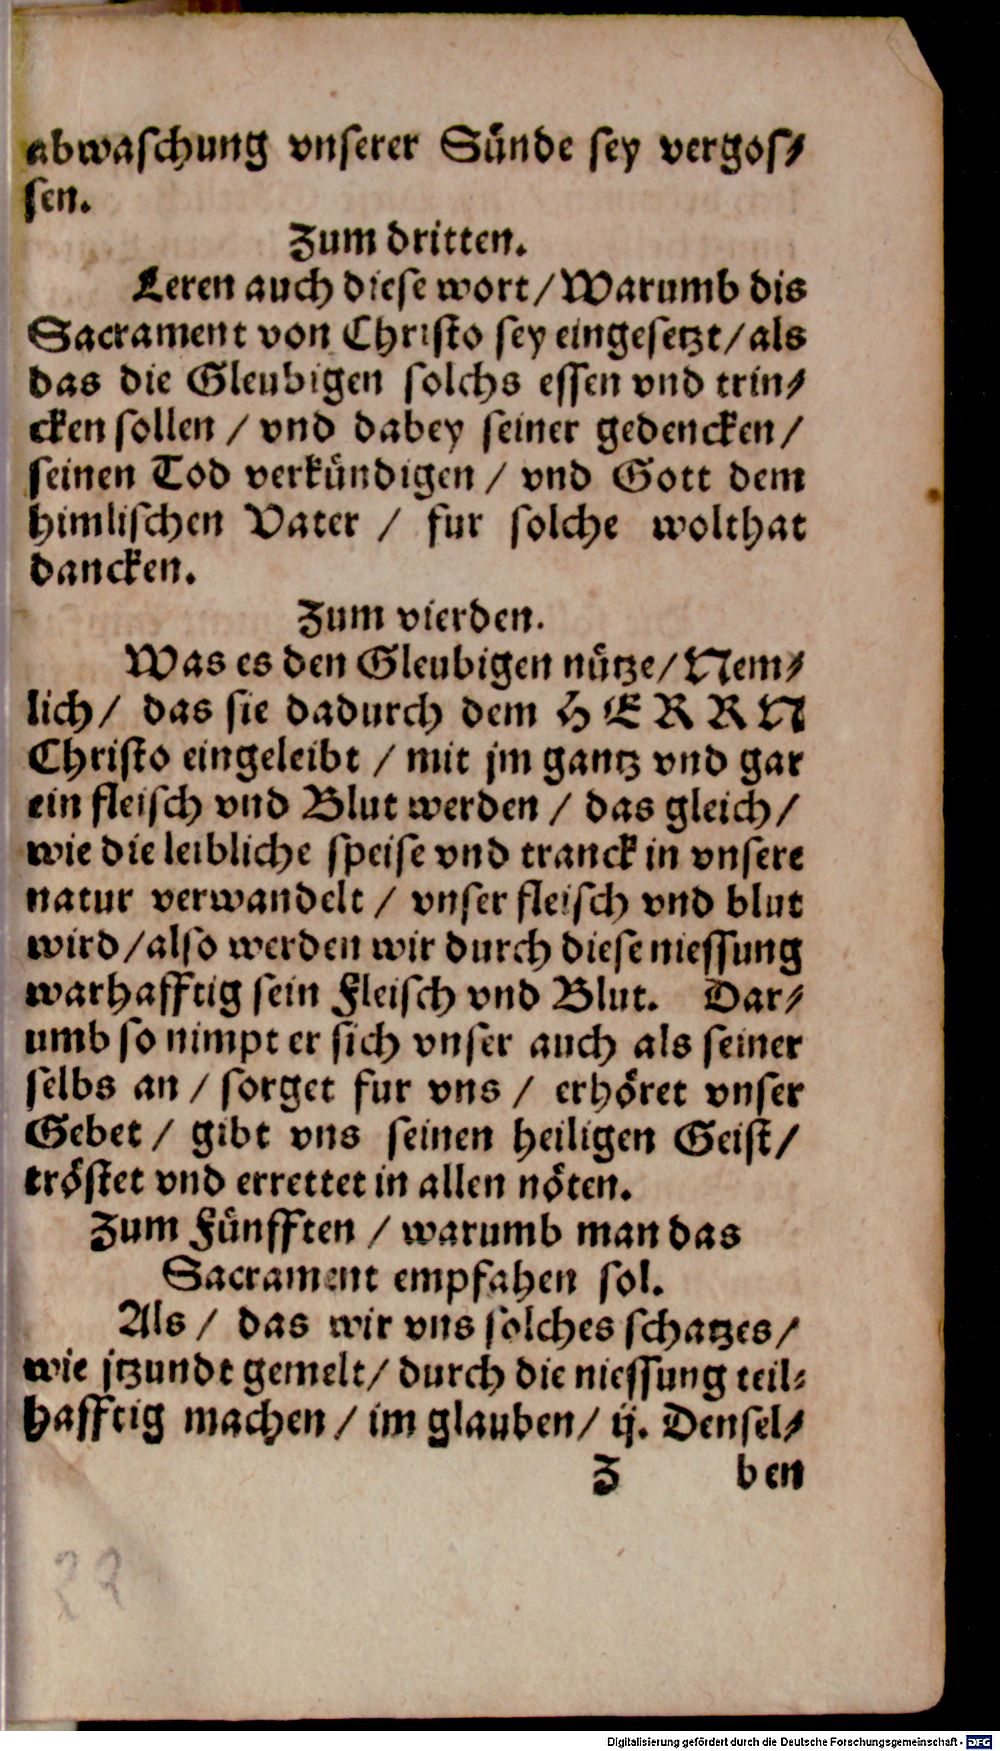 abwaschung vnserer Sünde sey vergos⸗
sen.
Zum dritten.
Leren auch diese wort / Warumb dis
Sacrament von Christo sey eingesetzt / als
das die Gleubigen solchs essen vnd trin⸗
cken sollen / vnd dabey seiner gedencken /
seinen Tod verkündigen / vnd Gott dem
himlischen Vater / fur solche wolthat
dancken.
Zum vierden.
Was es den Gleubigen nütze / Nem⸗
lich / das sie dadurch dem HERRN
Christo eingeleibt / mit jm gantz vnd gar
ein fleisch vnd Blut werden / das gleich /
wie die leibliche speise vnd tranck in vnsere
natur verwandelt / vnser fleisch vnd blut
wird / also werden wir durch diese niessung
warhafftig sein Fleisch vnd Blut. Dar⸗
umb so nimpt er sich vnser auch als seiner
selbs an / sorget fur vns / erhöret vnser
Gebet / gibt vns seinen heiligen Geist /
tröstet vnd errettet in allen nöten.
Zum Fünfften / warumb man das
Sacrament empfahen sol.
Als / das wir vns solches schatzes /
wie jtzundt gemelt / durch die niessung teil⸗
hafftig machen / im glauben / ij. Densel⸗
Z ben
Digitalisierung gefördert durch die Deutsche Forschungsgemeinschaft - DFG